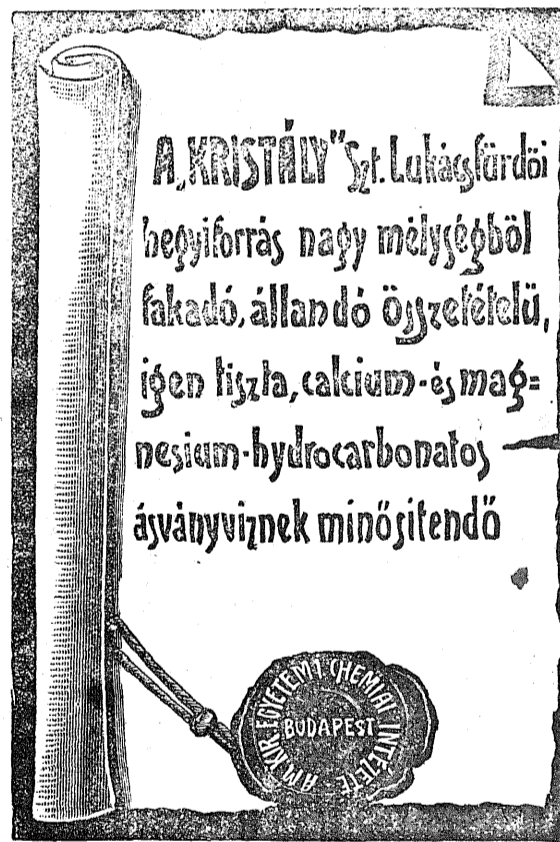 A „KRISTÁLY" Szt. Lukácsfürdői
hegyiforrás nagy mélységből
fakadó, állandó összetételü,
igen tiszta, calcium- és mag=
nesium-hydrocarbonatos
ásványviznek minősitendő
A M. KIR. EGYETEM 1 CHEMIAI INTÉZETE
BUDAPEST